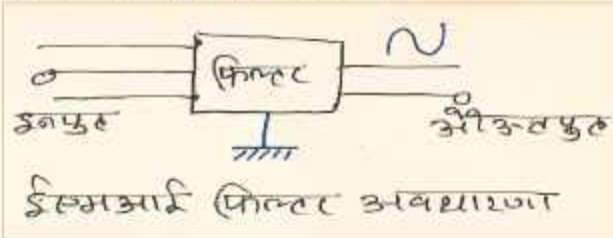 फिल्टर
इनपुट
औउतपुत
ईएमआई फिल्टर अवधारणा